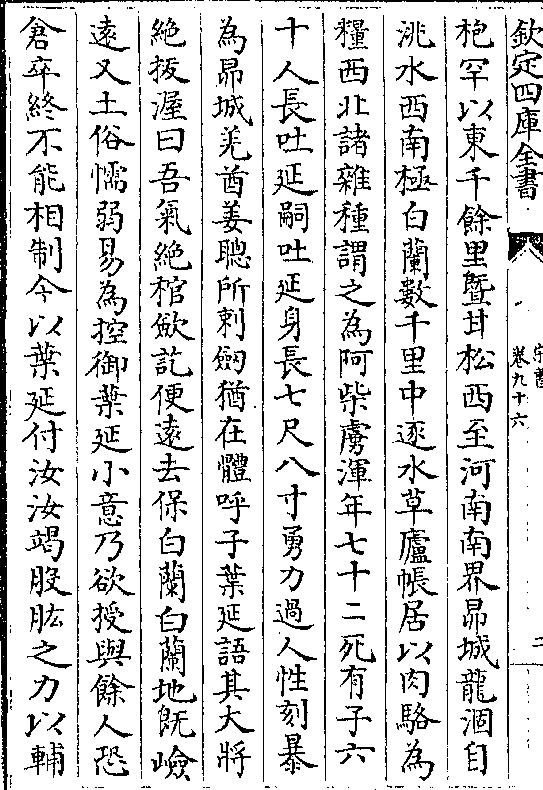 欽定四庫全書
宋書
卷九十六
二
枹罕以東千餘里暨甘松西至河南南界昻城龍涸自
洮水西南極白蘭數千里中逐水草廬帳居以肉酪為
糧西北諸雜種謂之為阿柴虜渾年七十二死有子六
十人長吐延嗣吐延身長七尺八寸勇力過人性刻暴
為昻城羌酋姜聰所刺劒猶在體呼子葉延語其大將
絶拔渥曰吾氣絶棺歛訖便遠去保白蘭白蘭地既嶮
遠又土俗懦弱易為控御葉延小意乃欲授與餘人恐
倉卒終不能相制今以葉延付汝汝竭股肱之力以輔